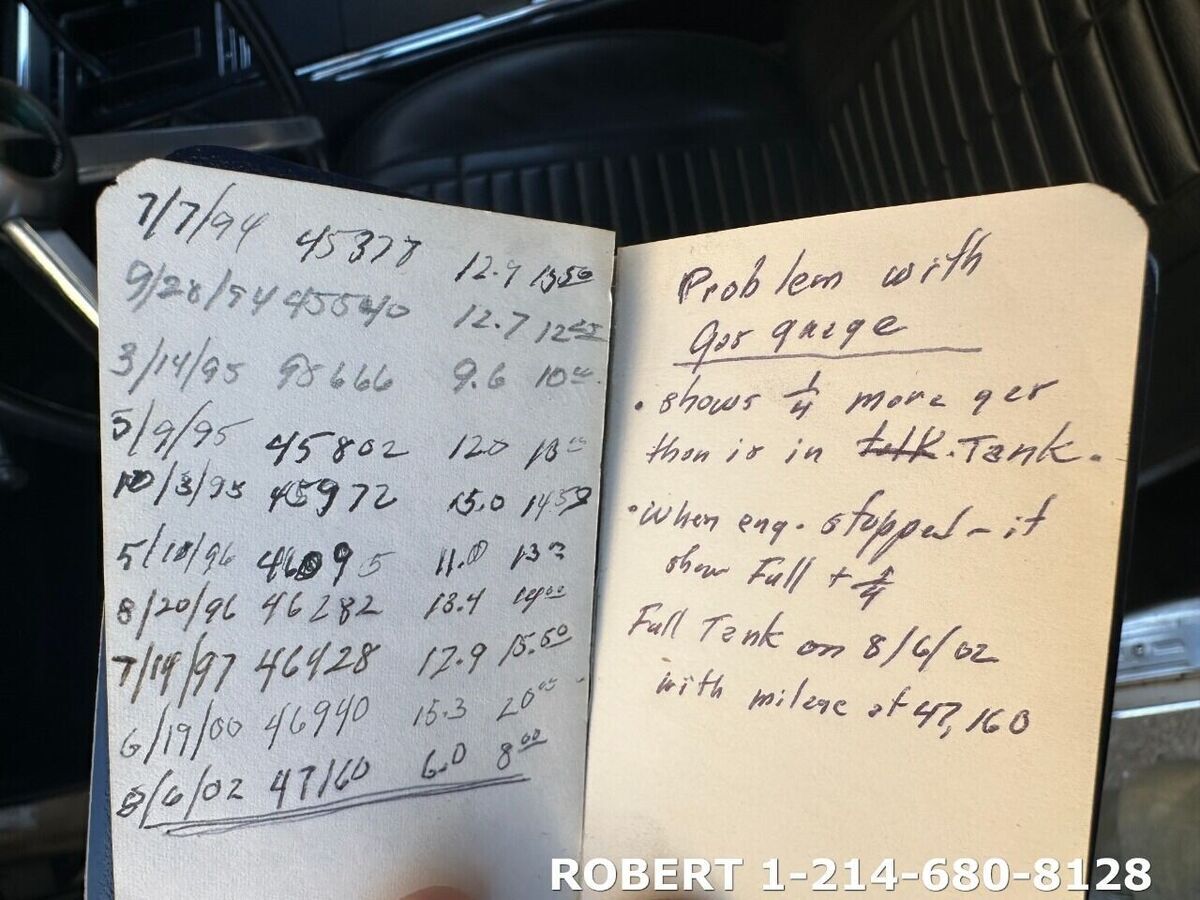 7/7/94 45377 12.9 13.50
9/28/94 45540 12.7
3/14/95 95666 9.6 10.00
5/9/95 45802 12.0
10/3/95 45972 15.0
5/18/96 46095 11.0
8/20/96 46282 13.4
7/14/97 46428 12.9 15.50
6/19/00 46940 15.3 20.00
8/6/02 47160 6.0 8.00
Problem with
Gas guage
• shows 1/4 more gas
than is in Tank.
• When eng. stopped - it
show Full + 1/4
Full Tank on 8/6/02
with milege at 47,160
ROBERT 1-214-680-8128